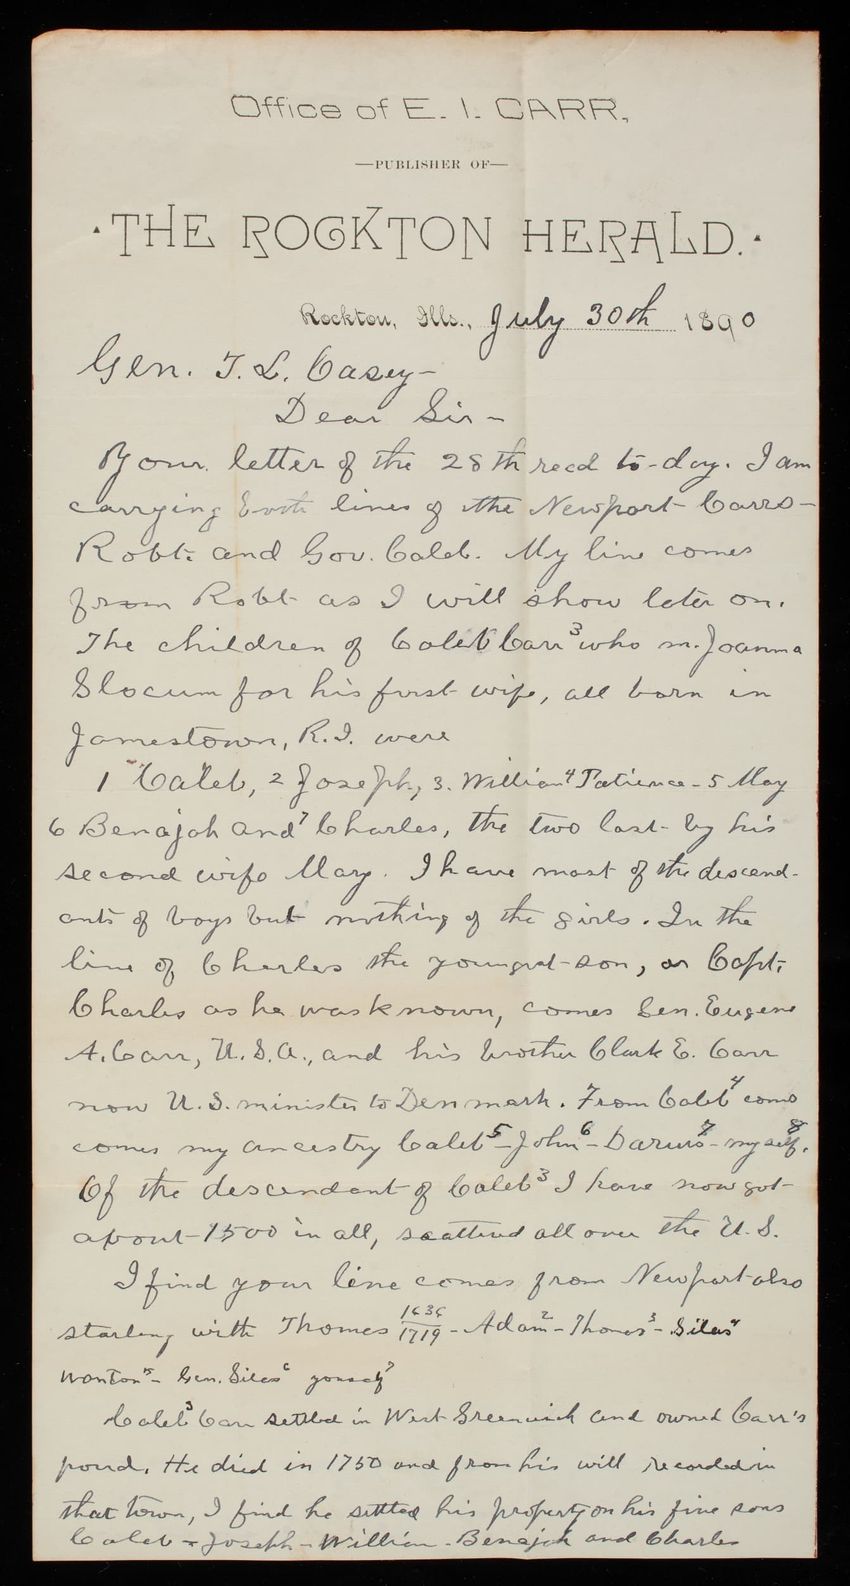 Office of E. I. CARR,
—PUBLISHER OF—
THE ROCKTON HERALD.
Rockton, Ills., July 30th 1890
Gen. T. L. Casey -
Dear Sir -
Your letter of the 28th recd to-day. I am
carrying both lines of the Newport Carrs -
Robt. and Gov. Caleb. My line comes
from Robt as I will show later on.
The children of Caleb Carr 3 who m. Joanna
Slocum for his first wife, all born in
Jamestown, R.I. were
1 Caleb, 2 Joseph, 3. William 4 Patience - 5 May
6 Benajah and 7 Charles, the two last by his
second wife Mary. I have most of the descend-
ants of boys but nothing of the girls. In the
line of Charles the youngest son, or Capt.
Charles as he was known, comes Gen. Eugene
A. Carr, U.S.A., and his brother Clark E. Carr
now U.S. minister to Denmark. From Caleb 4
comes my ancestry Caleb 5 - John 6 - Darius 7 - myself 8.
Of the descendant of Caleb 3 I have now got
about 1500 in all, scattered all over the U.S.
I find your line comes from Newport also
starting with Thomas 1636/1719 - Adam 2 - Thomas 3 - Silas 4
Wanton 5 - Gen. Silas 6 yourself 7
Caleb 3 Carr settled in West Greenwich and owned Carr's
pond. He died in 1750 and from his will recorded in
that town, I find he settled his property on his five sons
Caleb - Joseph - William - Benajah and Charles